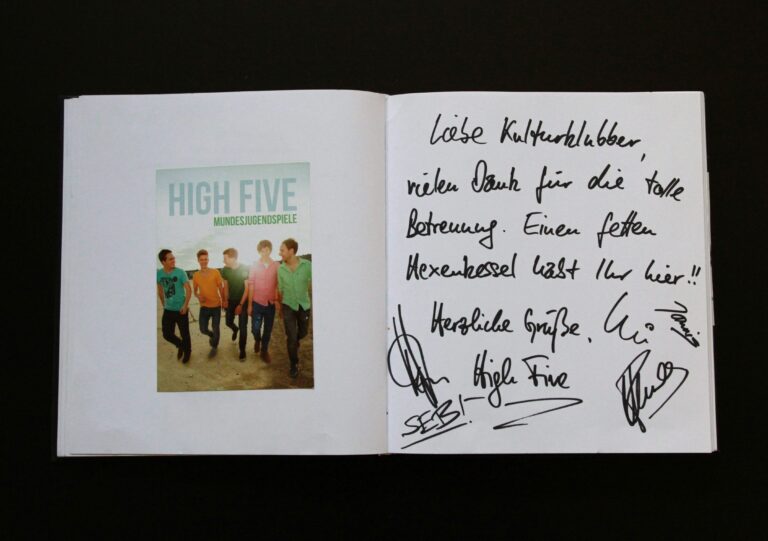 HIGH FIVE
MUNDESJUGENDSPIELE
Liebe Kulturklubber,
vielen Dank für die tolle
Betreuung. Einen fetten
Hexenkessel habt Ihr hier!!
Herzliche Grüße,
High Five
SEBI